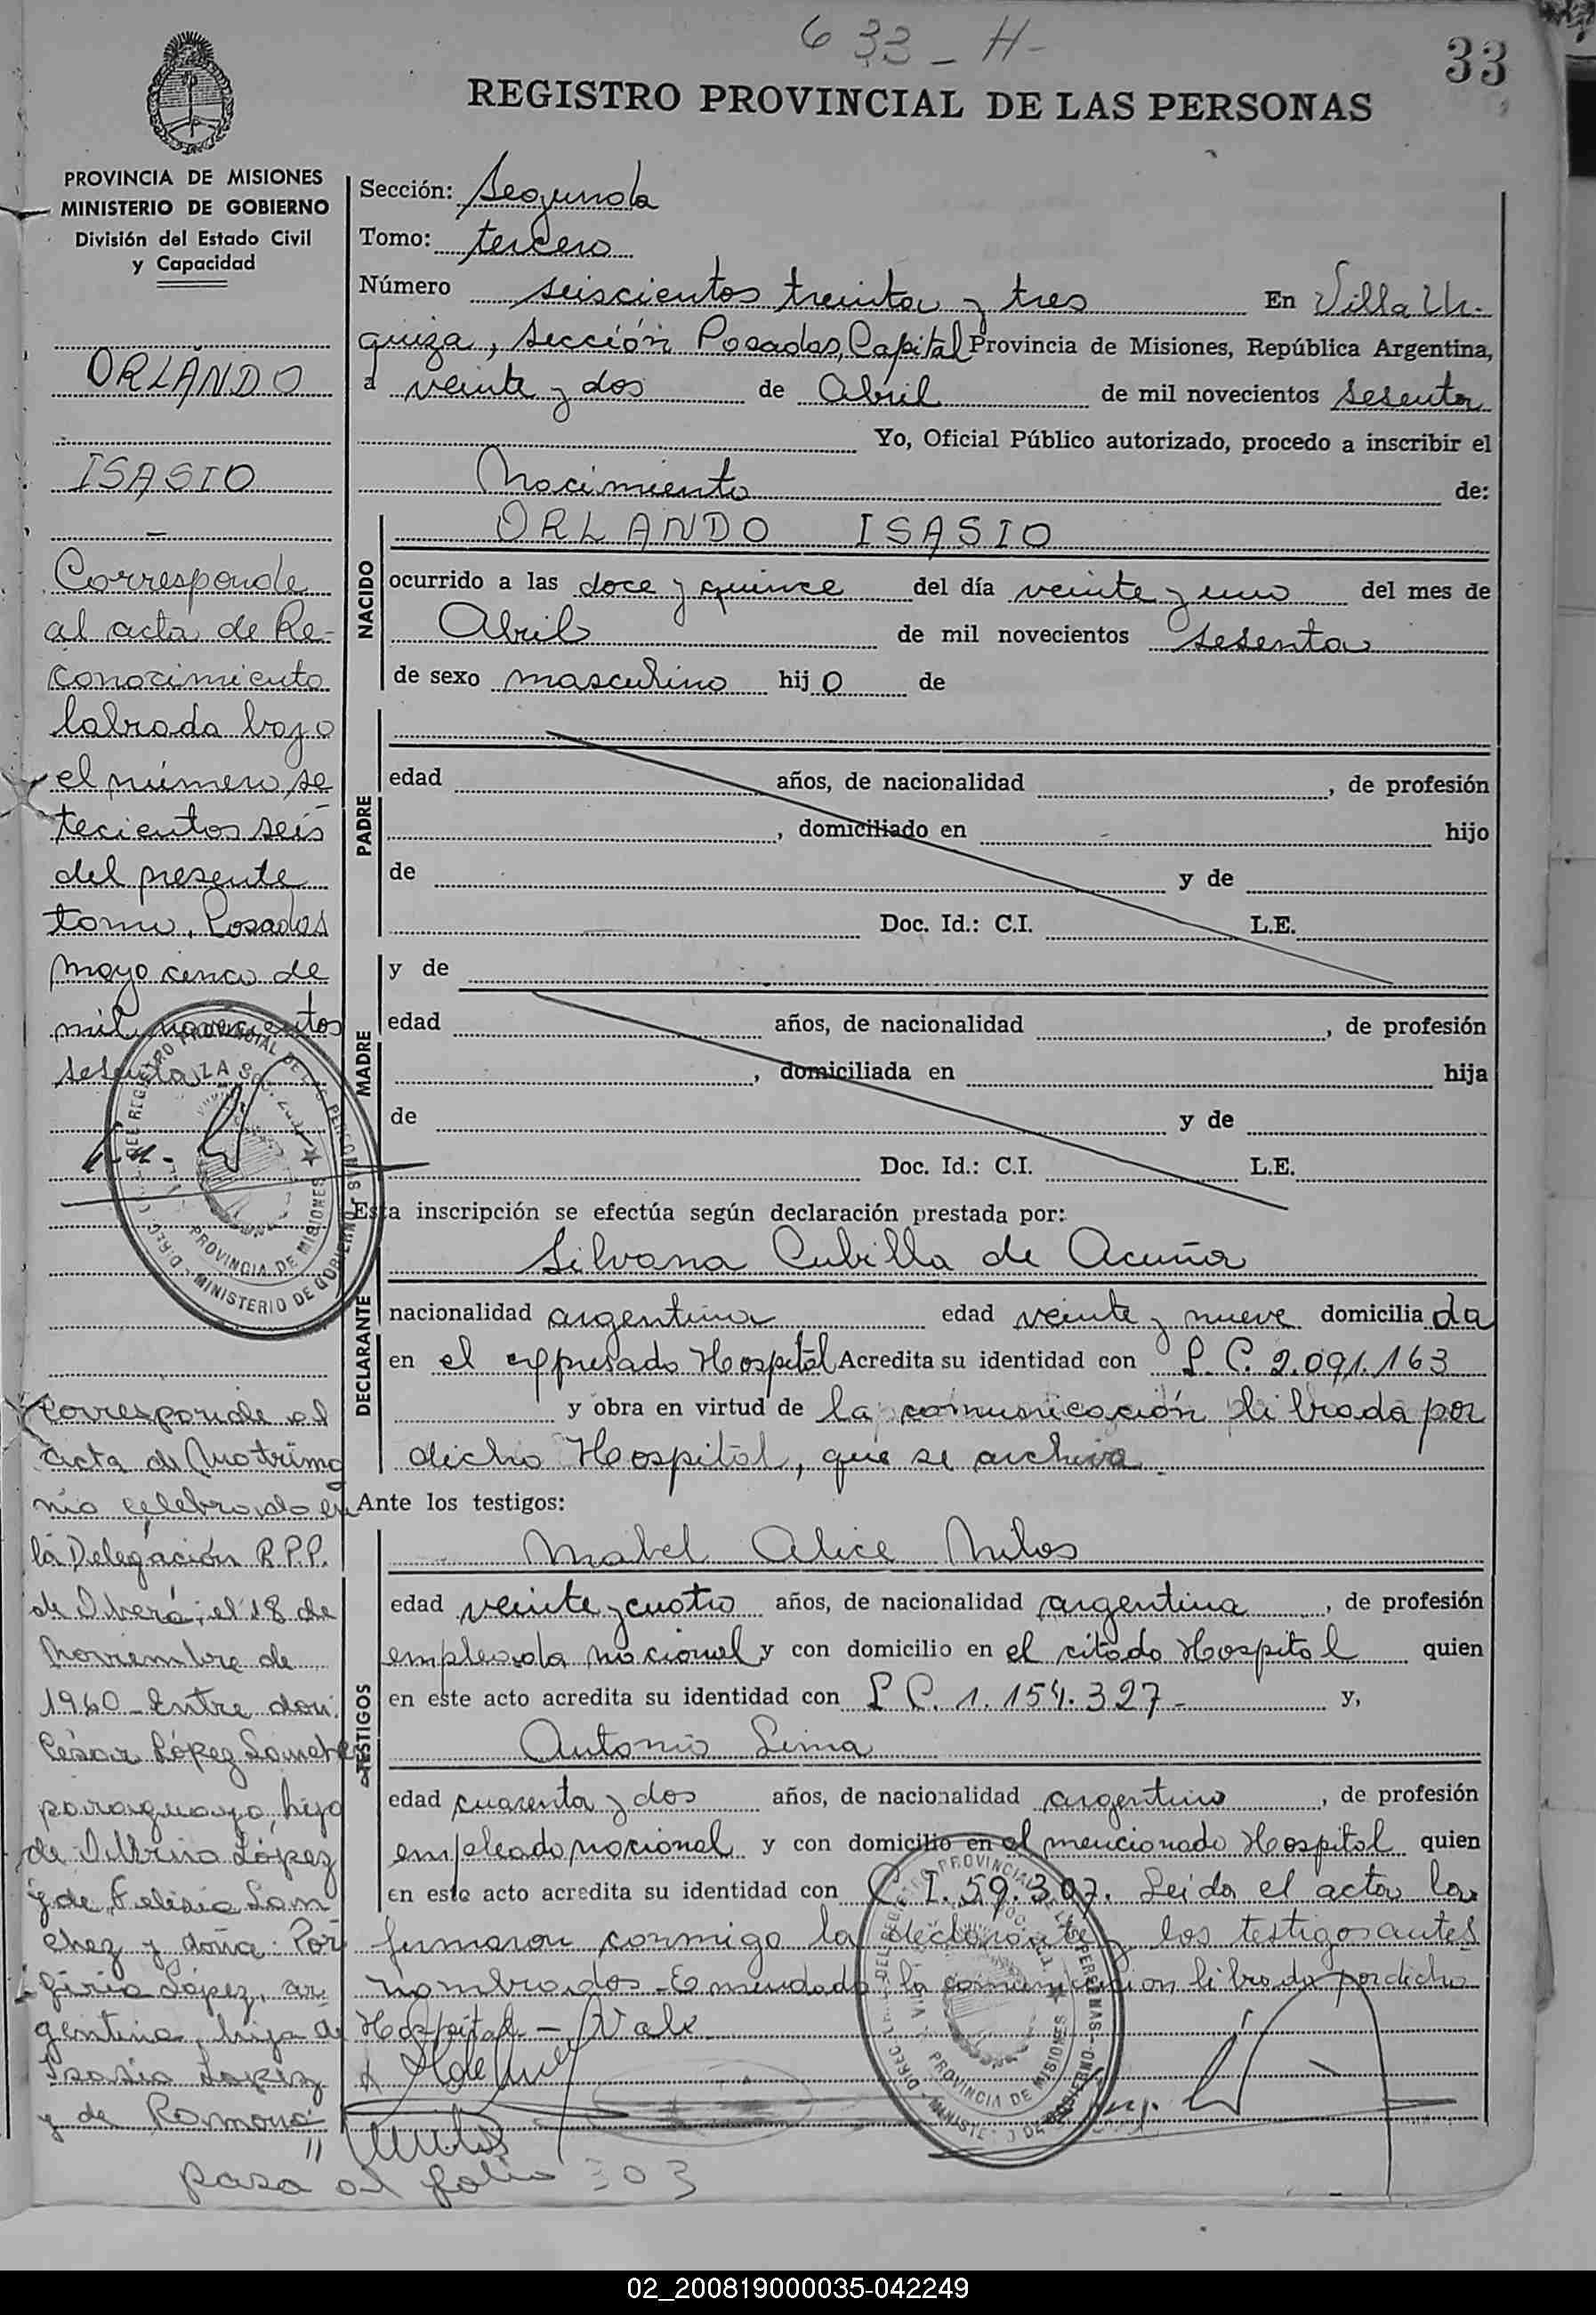 633-H-
33
REGISTRO PROVINCIAL DE LAS PERSONAS
PROVINCIA DE MISIONES
MINISTERIO DE GOBIERNO
División del Estado Civil
y Capacidad
ORLANDO
ISASIO
Corresponde
al acta de Re-
conocimiento
labrada bajo
el número se
tecientos seis
del presente
tomo. Posadas
mayo cinco de
mil novecientos
sesenta
Corresponde al
acta de Matrimo
nio celebrado en
la Delegación R.P.P.
de Oberá, el 18 de
Noviembre de
1960 - Entre don:
César López Sanchez
paraguayo, hijo
de López
y de Felicia San
chez y doña: Por
firia López, ar
gentina, hija de
Isasio Lopez
y de Ramona
"
pasa al folio 303
Sección: Segunda
Tomo: tercero
Número seiscientos treinta y tres En Villa Ur-
quiza, sección Posadas, Capital Provincia de Misiones, República Argentina,
a veinte y dos de Abril de mil novecientos sesenta
Yo, Oficial Público autorizado, procedo a inscribir el
Nacimiento de:
NACIDO
ORLANDO ISASIO
ocurrido a las doce y quince del día veinte y uno del mes de
Abril de mil novecientos sesenta
de sexo masculino hijo de
PADRE
edad años, de nacionalidad , de profesión
, domiciliado en hijo
de y de
Doc. Id.: C.I. L.E.
MADRE
y de
edad años, de nacionalidad , de profesión
, domiciliada en hija
de y de
Doc. Id.: C.I. L.E.
Esta inscripción se efectúa según declaración prestada por:
DECLARANTE
Silvana Cubilla de Acuña
nacionalidad argentina edad veinte y nueve domiciliada
en el expresado Hospital Acredita su identidad con L.C. 2.091.163
y obra en virtud de la comunicación librada por
dicho Hospital, que se archiva.
Ante los testigos:
TESTIGOS
Mabel Alice
edad veinte y cuatro años, de nacionalidad argentina, de profesión
empleada nacional y con domicilio en el citado Hospital quien
en este acto acredita su identidad con L.C. 1.154.327- y,
Antonio Lima
edad cuarenta y dos años, de nacionalidad argentino, de profesión
empleado nacional y con domicilio en el mencionado Hospital quien
en este acto acredita su identidad con C.I. 59.307. Leida el acta la
firmaron conmigo la declarante y los testigos antes
nombrados - Emendado: la comunicacion librada por dicho
Hospital - Vale
DIREC. DEL REGISTRO PROVINCIAL DE LAS PERSONAS
MINISTERIO DE GOBIERNO
PROVINCIA DE MISIONES
PROVINCIA DE MISIONES
02_200819000035-042249